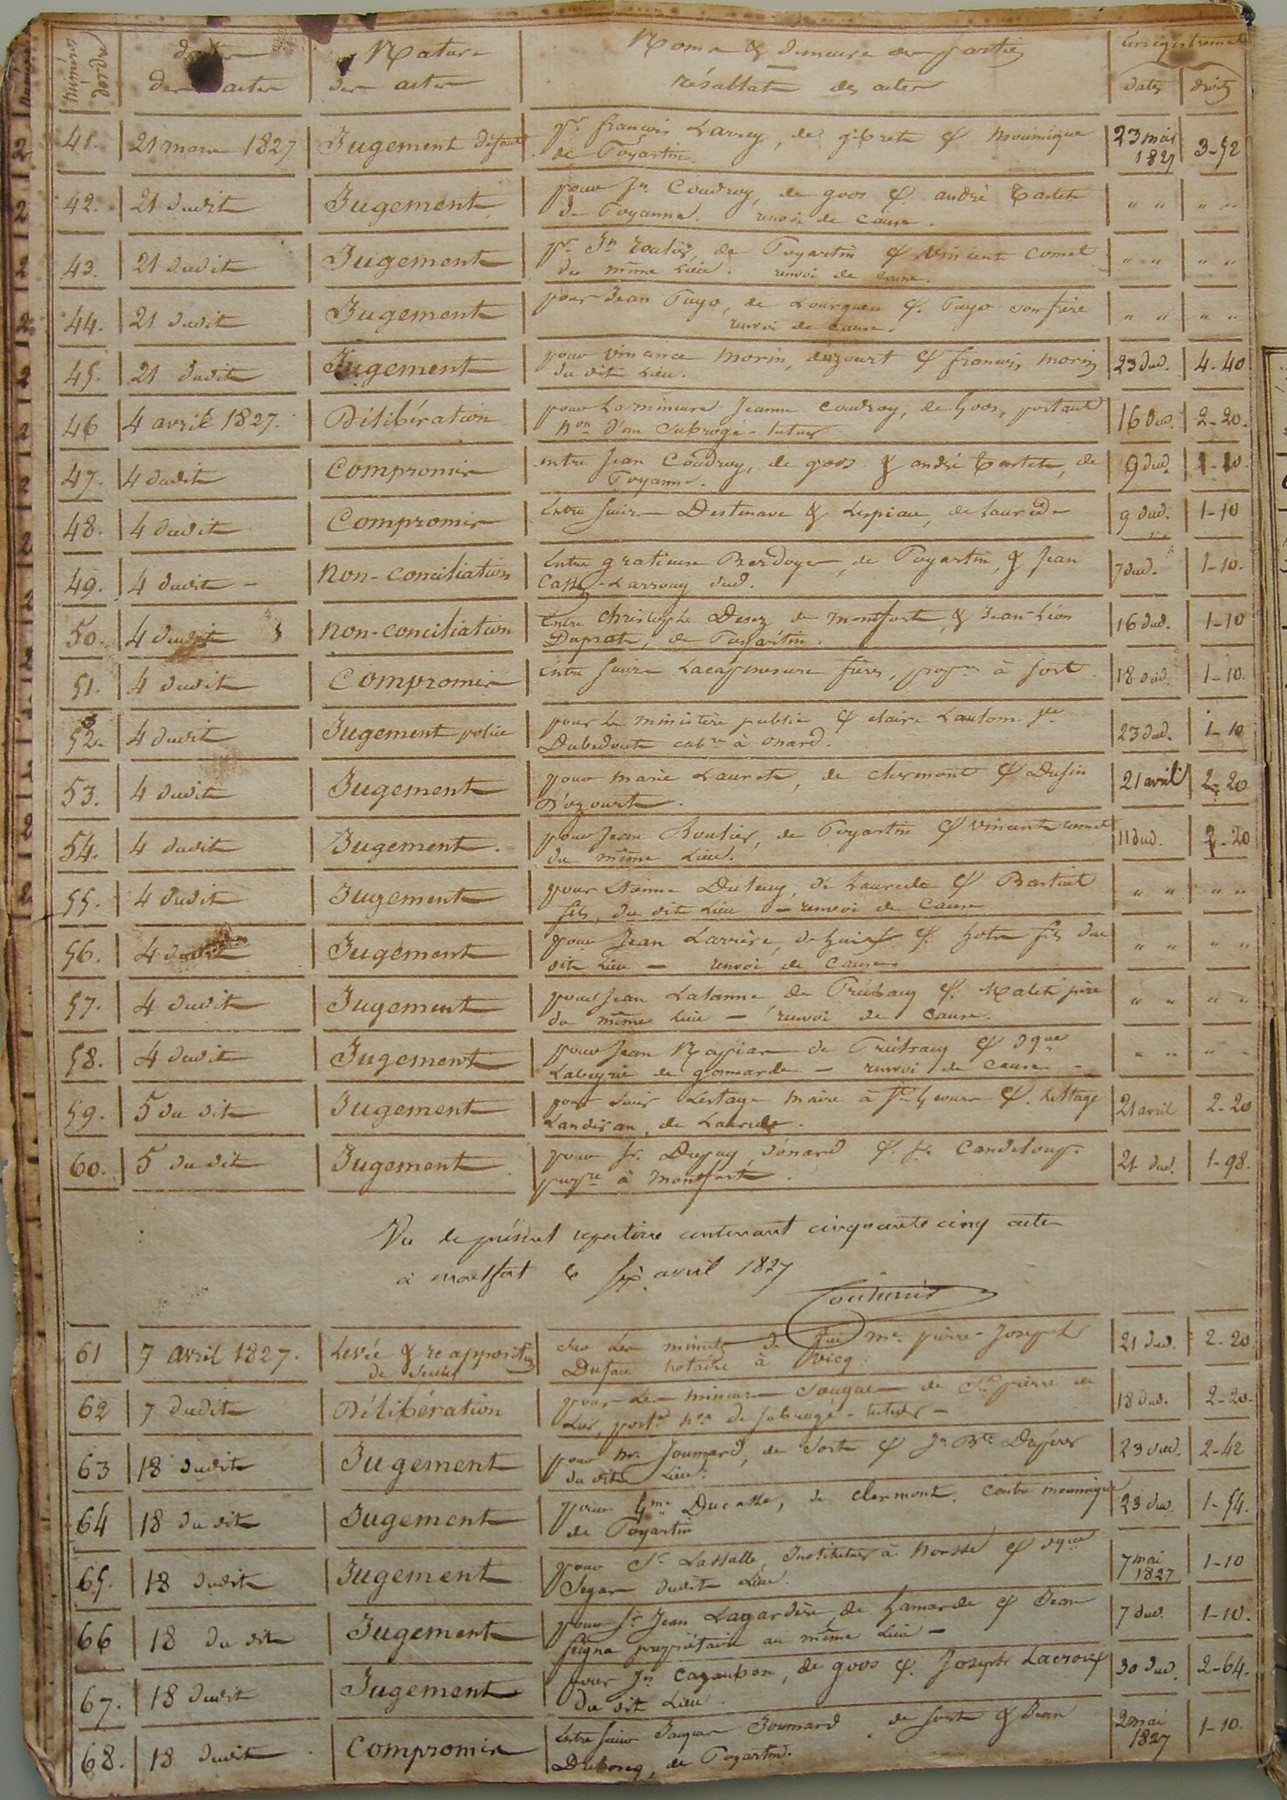 Numéros d'ordre
dates des actes
Nature des actes
Noms & demeure des parties
résultats des actes
Enregistrement
dates droits
41. 21 mars 1827 Jugement défaut pr. françois Larrey, de gibret & Mounique 23 mai 1827 3-52
de Poyartin.
42. 21 dudit Jugement pour Jn Coudroy, de goos & andré Tastet " " " "
de Poyanne. renvoi de cause.
43. 21 dudit Jugement pr. Jn roulier, de Poyartin & Vincent Comet " " " "
du même Lieu. renvoi de cause.
44. 21 dudit Jugement pour Jean Puyo, de Lourquen & Puyo son frère " " " "
renvoi de cause.
45. 21 dudit Jugement pour vincence morin, d'ozourt & françois morin 23 dud. 4-40
du dit Lieu.
46 4 avril 1827. Délibération pour La mineure Jeanne Coudroy, de Goos, portant 16 dud. 2-20.
non d'un Subrogé-tuteur
47. 4 dudit Compromis entre Jean Coudroy, de goos & andré Tastet, de 9 dud. 1-10.
Poyanne.
48. 4 dudit Compromis Entre Sieurs Destenave & Lespiau, de Laurede 9 dud. 1-10
49. 4 dudit - Non-conciliation Entre gratieuse Berdoyer, de Poyartin, & Jean 7 dud. 1-10.
Casse-Larrouy dud.
50. 4 dudit Non-conciliation Entre Christophe Desez de montfort & Jean-Léon 16 dud. 1-10
Duprat, de Poyartin.
51. 4 dudit Compromis Entre Sieurs Lacaymesure frères, propres à Sort. 18 dud. 1-10.
52. 4 dudit Jugement police pour le ministère public & claire Lautom
Dubedout cabre à onard. 23 dud. 1-10
53. 4 dudit Jugement pour marie Laurete, de clermont & Dufin 21 avril 2-20
D'ozourt.
54. 4 dudit Jugement. pour Jean Roulier, de Poyartin & Vincent comet 11 dud. 2-20
du même Lieu.
55. 4 dudit Jugement pour Etienne de Laurede & " " " "
fils, du dit Lieu - renvoi de Cause
56. 4 dudit Jugement pour Jean Larrère, & fils du " " " "
dit Lieu - renvoi de Cause
57. 4 dudit Jugement pour Jean Lalanne, de Préchacq & Malet père " " " "
du même Lieu - renvoi de Cause.
58. 4 dudit Jugement pour Jean Napias de Préchacq & dque " " " "
Labeyrie de gamarde - renvoi de Cause -
59. 5 du dit Jugement pour Sieur Lestage Maire à St Geours & Lestage 21 avril 2-20
Landiran, de Laurede.
60. 5 du dit Jugement pour Jn. Dupuy, d'onard & Candeloup. 21 dud. 1-98.
propre à Montfort.
Vu le présent repertoire contenant cinquante cinq actes
à montfort le six avril 1827
61 7 avril 1827. Levée & reapposition Sur Les minutes de feu me. pierre-Joseph 21 dud. 2-20
de Scellés Dufau notaire à Vicq.
62 7 dudit Délibération pour Les mineurs Souques de St pierre de 18 dud. 2-20.
Lier, portt non de Subrogé-tuteur -
63 18 dudit Jugement pour Mr. Joumard, de Sort & Jn Bte 23 dud. 2-42
du dit Lieu.
64 18 du dit Jugement pour Gme Ducasse, de clermont. Contre mounique 23 dud. 1-54.
de Poyartin
65. 18 dudit Jugement pour Sr Lassalle, Instituteur à nousse & dque 7 mai 1827 1-10
Segas dudit Lieu.
66 18 du dit Jugement pour Sr Jean Lagardère, de Gamarde & Jean 7 dud. 1-10.
Seigna propriétaire au même Lieu -
67. 18 dudit Jugement pour Jn Cazaubon, de goos & Joseph Lacroix 30 dud. 2-64.
du dit Lieu.
68. 18 dudit Compromis Entre Sieur Jacques Joumard de Sort & Jean 2 mai 1827 1-10.
Duboscq, de Poyartin.